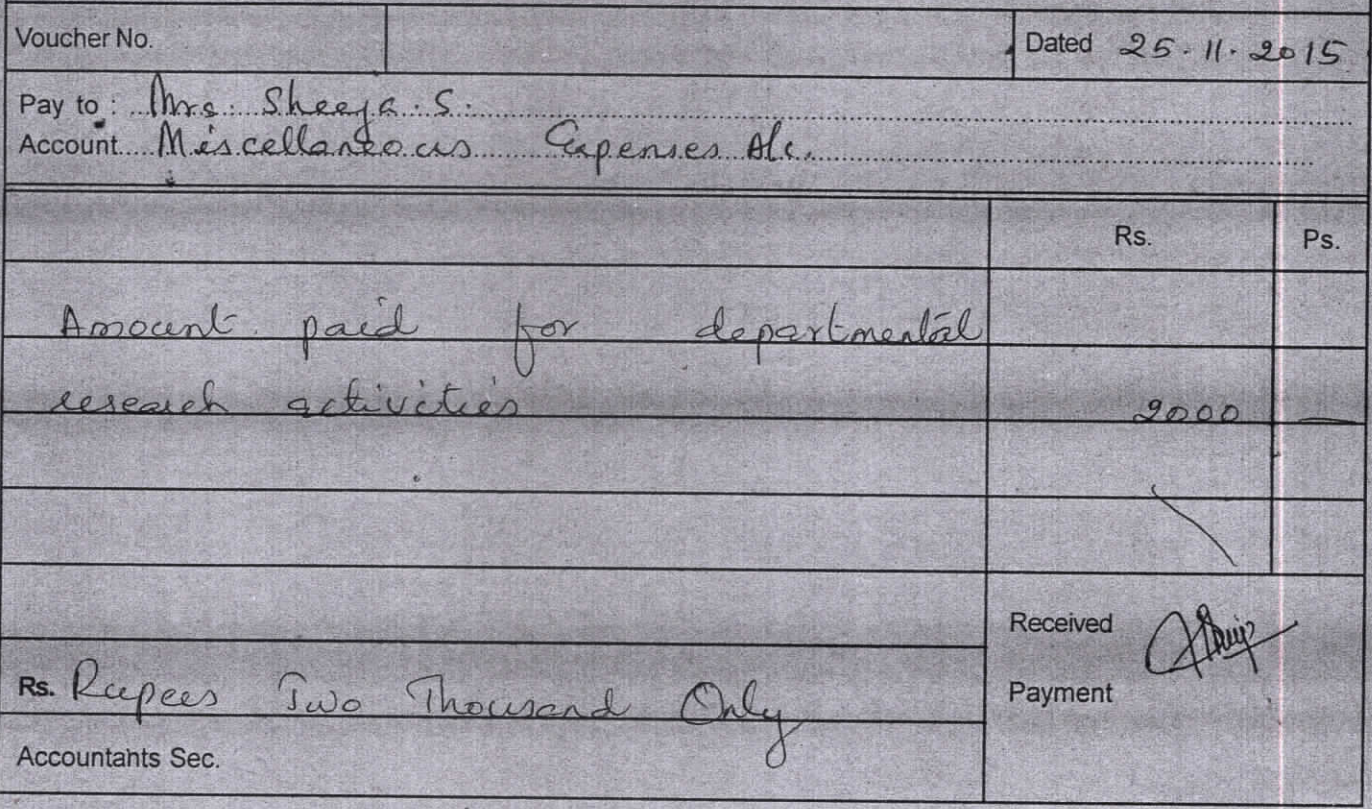 Voucher No.
Dated 25-11-2015
Pay to : Mrs. Sheeja.S.
Account Miscellaneous Expenses A/c.
Rs. Ps.
Amount paid for departmental
research activities 2000 —
Received
Rs. Rupees Two Thousand Only
Payment
Accountants Sec.